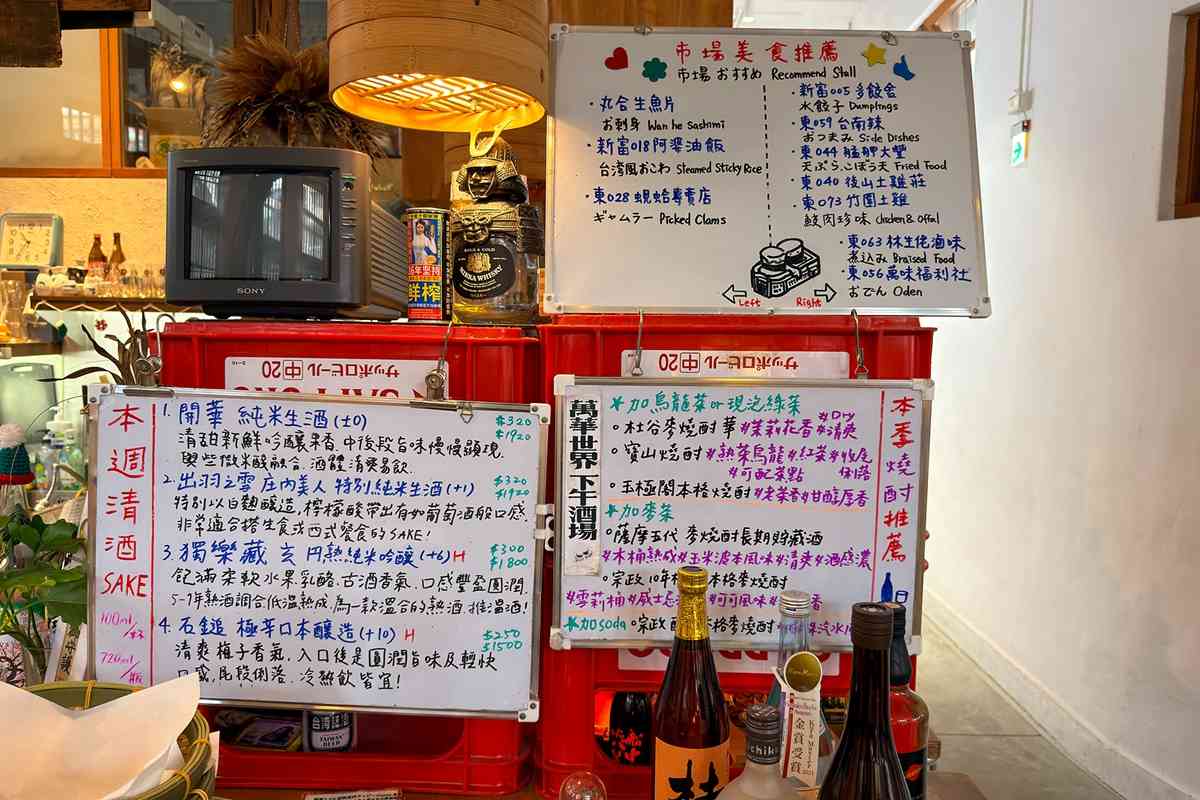 市場美食推薦
市場 おすすめ Recommend Stall
・丸合生魚片
お刺身 Wan he Sashimi
・新富018阿婆油飯
台湾風おこわ Steamed Sticky Rice
・東028 蜆蛤專賣店
ギャムラー Picked Clams
・新富005 多餃舍
水餃子 Dumplings
・東059 台南辣
おつまみ Side Dishes
・東044 艋舺大墅
天ぷら、ごぼう天 Fried Food
・東040 後山土雞莊
・東073 竹園土雞
鮫肉珍味 chicken & Offal
・東063 林生佬滷味
煮込み Braised Food
・東056 萬味福利社
おでん Oden
Left Right
SONY
年堅持
鮮榨
GOLD & GOLD
NIKKA WHISKY
サッポロビール 中20
サッポロビール 中20
本週清酒
SAKE
100ml/杯
720ml/瓶
1. 開華 純米生酒 (±0) $320
$1920
清甜新鮮吟釀果香,中後段旨味慢慢顯現,
與些微米酸融合,酒體清爽易飲.
2. 出羽之雪 庄內美人 特別純米生酒 (+1) $320
$1920
特別以白麴釀造,檸檬酸帶出有如葡萄酒般口感.
非常適合搭生食或西式餐食的SAKE!
3. 獨樂藏 玄 円熟純米吟釀 (+6) H $300
$1800
飽滿柔軟水果乳酪.古酒香氣.口感豐盈圓潤.
5-1年熟酒調合低溫熟成,為一款溫合的熟酒.推溫酒!
4. 石鎚 極辛口本釀造 (+10) H $250
$1500
清爽梅子香氣,入口後是圓潤旨味及輕快
口感,尾段俐落.冷熱飲皆宜!
萬華世界下午酒場
本季燒酎推薦
加烏龍茶or現泡綠茶
杜谷麥燒酎 華 #茉莉花香 #清爽 #Dry
寶山燒酎 #熟茶烏龍 #紅茶 #收尾俐落
#可配茶點
玉極閣本格燒酎 #老茶香 #甘醇厚香
加麥茶
薩摩五代 麥燒酎長期貯藏酒
#木桶熟成 #玉米濃本風味 #清爽 #酒感濃
宗政 10年 本格麥燒酎
#雪莉桶 #威士忌 #可可風味 香
加soda 宗政 本格麥燒酎 汽水
TAIWAN BEER
金賞受賞
2021
杜